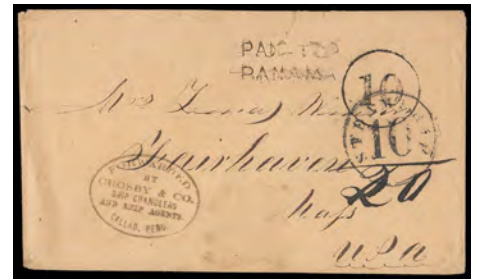 PAID TO
PANAMA
10
STEAMSHIP
10
Mrs Thomas
Fairhaven
20
Mass
USA
FORWARDED
BY
CROSBY & CO.
SHIP CHANDLERS
AND SHIP AGENTS.
CALLAO, PERU.